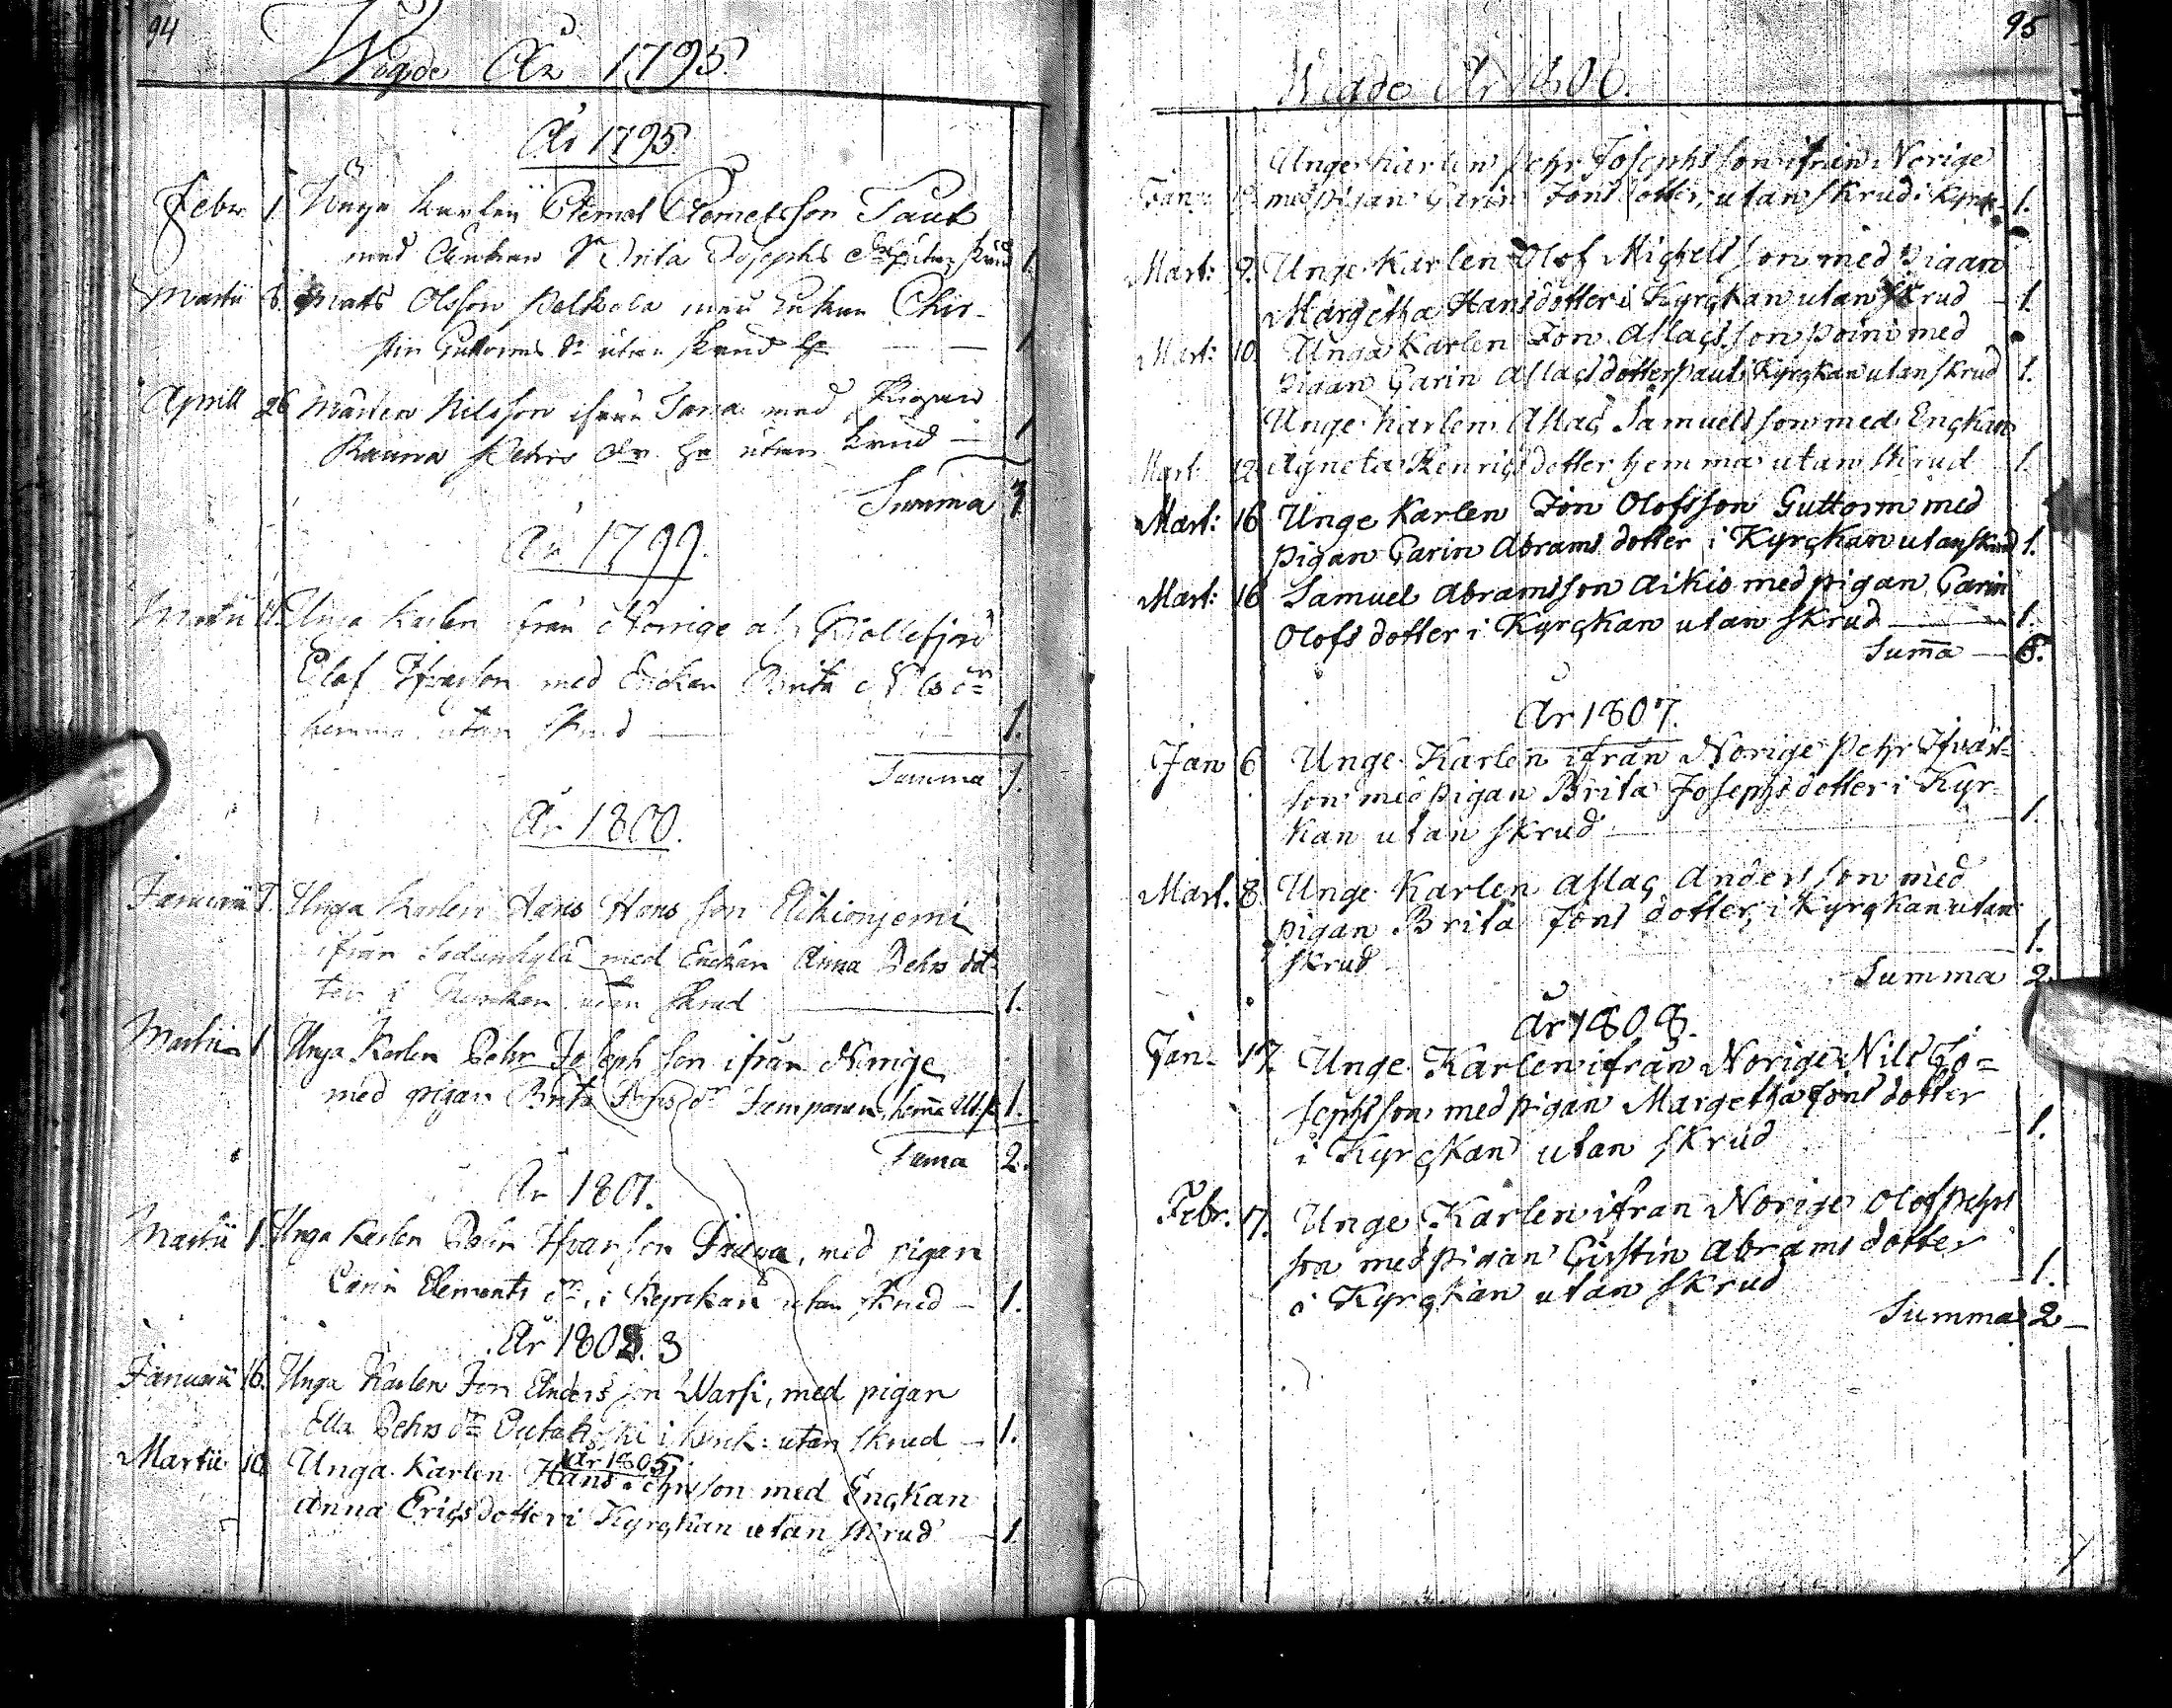 94
Wigde År 1795.
År 1795.
Febr. 1 Unga karlen Clemet Clemetsson Saut
med Enkan Brita Josephs dr utan skrud 1.
Martii 8. Mats Olsson Kelkola med Enkan Chir-
stin Guttorms dr utan skrud 1
Aprill 26 Mårten Nilsson ifrån Tana med Pigan
Rauna Pehrs dr utan skrud — 1
Summa 3
År 1799.
Martii Unga karlen från Norrige af Kiollefjord
Olof Ifvarson med Enckan Brita Nils dr
hemma utan skrud — 1.
Summa 1.
År 1800.
Januarii Unga karlen Hans Hans son
ifrån Sodankylä med Enckan Anna Pehrs dot-
ter i Kyrckan utan skrud — 1.
Martii 1 Unga Karlen Pehr Joseph son ifrån Norrige
med pigan Brita dr hema ut. 1.
Suma 2.
År 1801.
Martii 1. Unga Karlen Pehr Ifvarson, med pigan
Carin Clements dr, i Kyrckan utan skrud — 1.
År 1802. 3
Januarii 16. Unga Karlen Jon Anders son Warsi, med pigan
Ella Pehrs dr i kyrck: utan skrud — 1.
År 1805
Martii 10 Unga Karlen Hans Pehrsson med Ençkan
Anna Eriçsdotter i Kyrçkan utan skrud — 1.
95
Wigde År 1806.
Unge Karlen Pehr Josephsson ifrån Norige
Jan: med pigan Carin Jons dotter, utan skrud i kyrk 1.
Mart: 9. Unge Karlen Olof Miçhels son med pigan
Margetha Hansdotter i Kyrçkan utan skrud — 1.
Mart: 10. Unga Karlen Jon Aslaçsson Poini med
pigan Carin Aslaçsdotter Paut i Kyrçkan utan skrud 1.
Unge Karlen Aslaç Samuelsson med Ençkan
Mart: 12 Agneta Henriçsdotter hemma utan skrud 1.
Mart: 16 Unge Karlen Jon Olofsson Guttorm med
pigan Carin Abrams dotter i Kyrçkan utan skrud 1.
Mart: 16 Samuel Abramsson Aikio med pigan Carin
Olofs dotter i Kyrçkan utan skrud — 1.
Suma — 6.
År 1807.
Jan 6 Unge Karlen ifrån Norige Pehr Ifvars-
son med pigan Brita Josephsdotter i Kyr-
kan utan skrud — 1.
Mart. 8. Unge Karlen Aslaç Anders son med
pigan Brita Jons dotter, i Kyrçkan utan
skrud 1.
Summa 2.
År 1808.
Jan- 17. Unge Karlen ifrån Norige Nils Jo=
sephsson med pigan Margetha Jons dotter
i Kyrçkan utan skrud 1.
Febr. 17. Unge Karlen ifran Norige Olof Pehrs
son med pigan Cirstin Abrams dotter
i Kyrçkan utan skrud — 1.
Summa 2 —